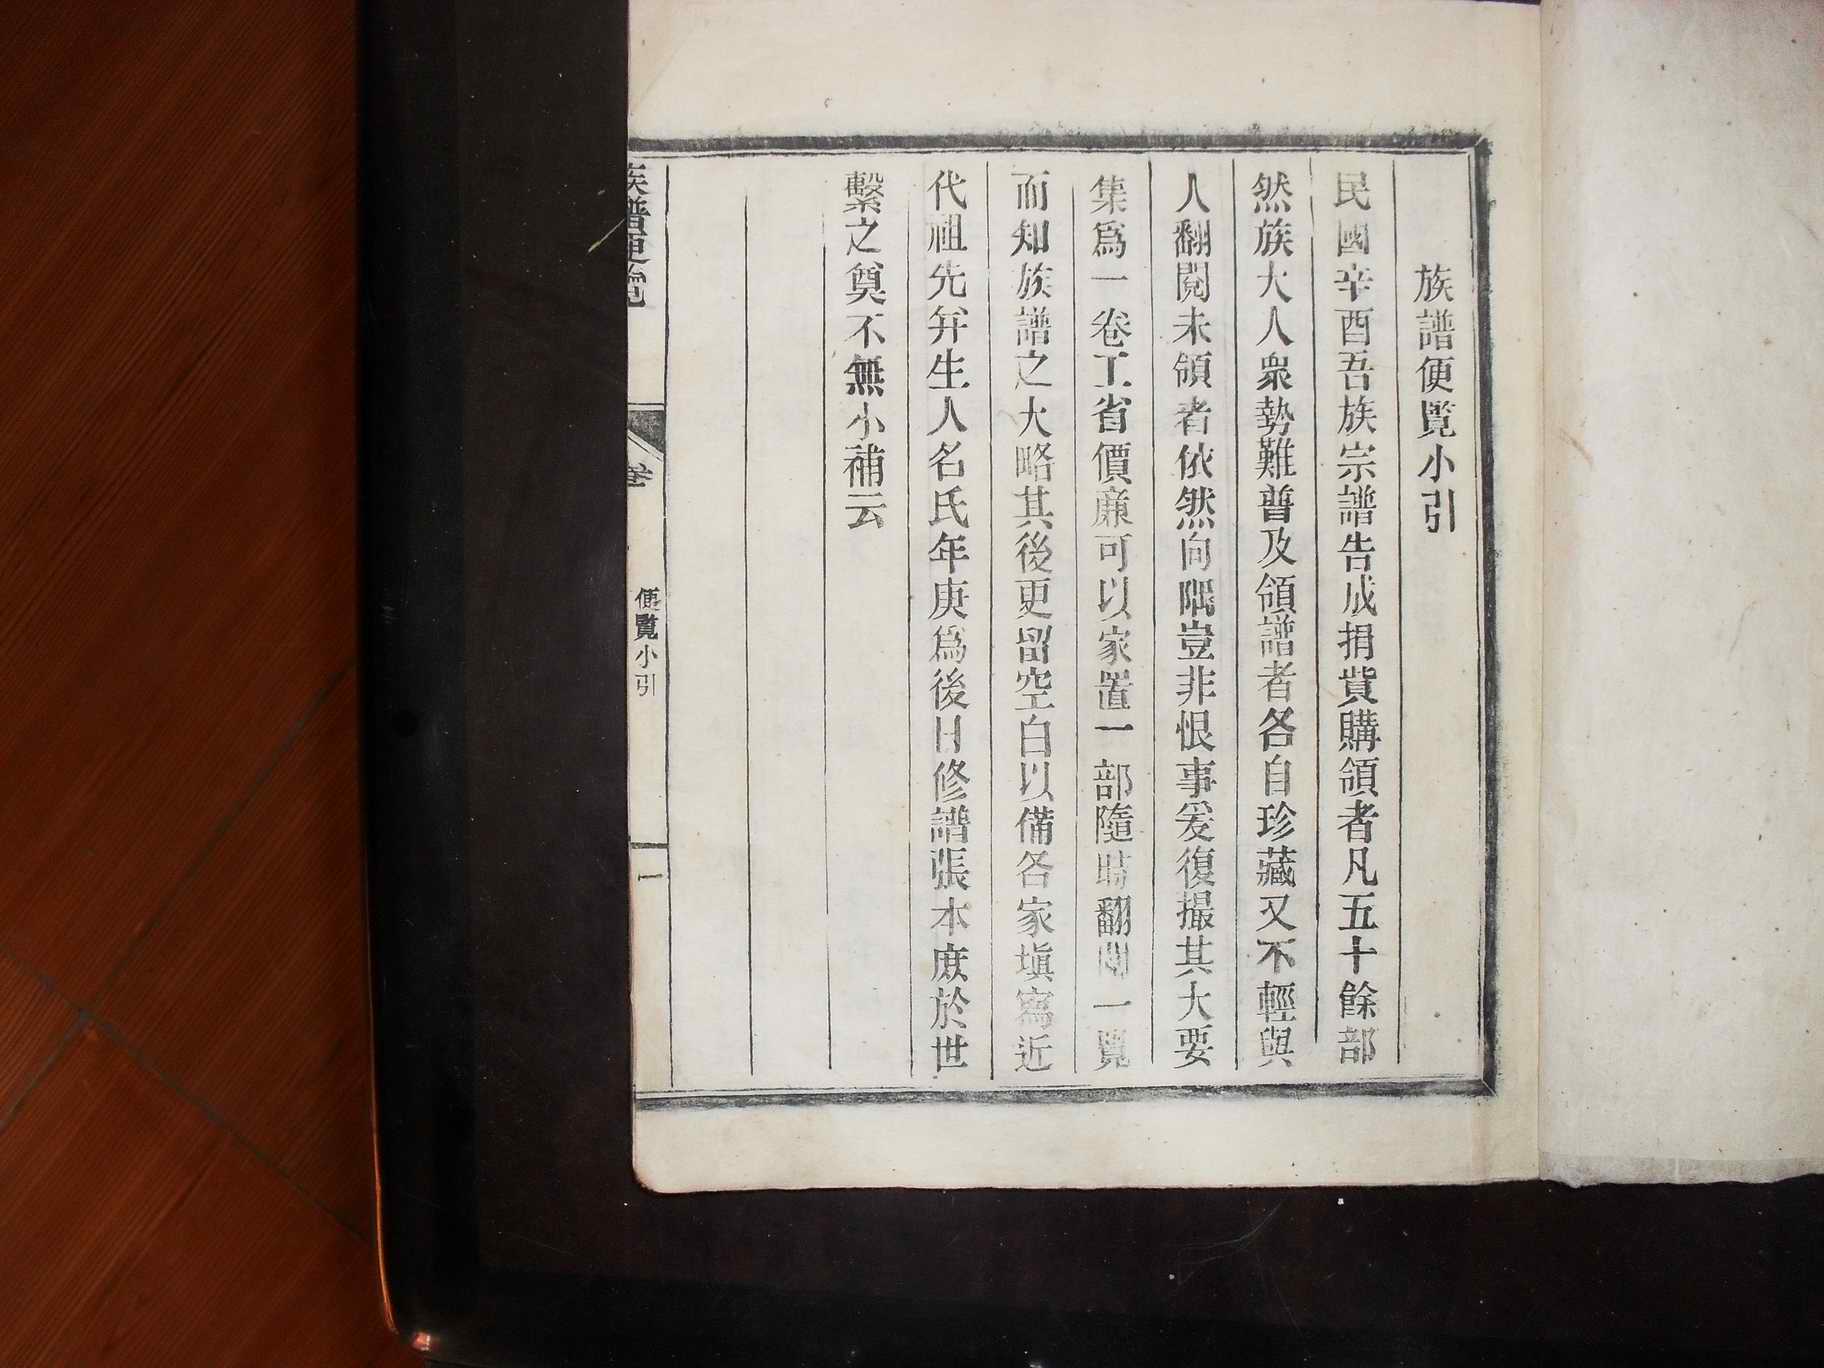 族譜便覽小引
民國辛酉吾族宗譜告成捐貲購領者凡五十餘部
然族大人衆勢難普及領譜者各自珍藏又不輕與
人翻閱未領者依然向隅豈非恨事爰復撮其大要
集爲一卷工省價廉可以家置一部隨時翻閱一覽
而知族譜之大略其後更留空白以備各家塡寫近
代祖先并生人名氏年庚爲後日修譜張本庶於世
繫之奠不無小補云
族譜便覽
卷
便覽小引
一